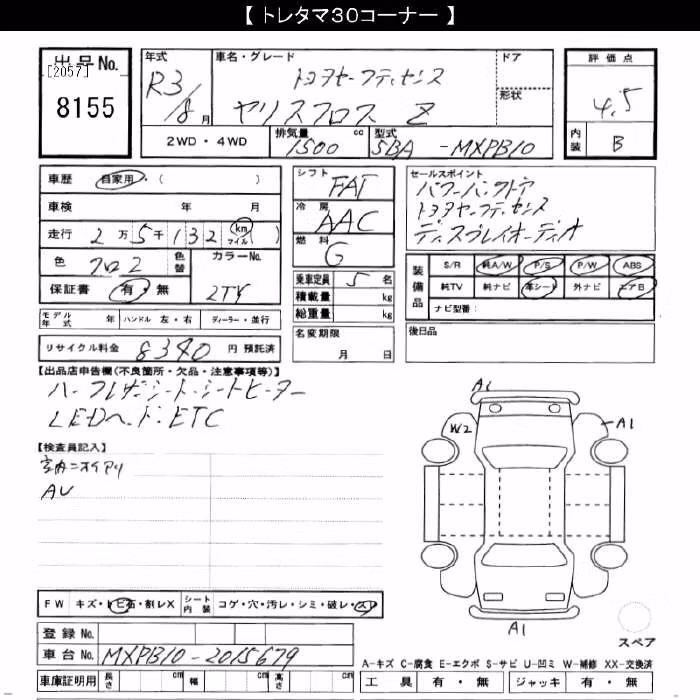 【 トレタマ30コーナー 】
出品No.
[2057]
8155
年式
R3/8月
車名・グレード
トヨタセーフティセンス
ヤリスクロス Z
ドア
形状
評価点
4.5
内装
B
2WD・4WD
排気量
1500cc
型式
5BA-MXPB10
車歴 自家用・( )
車検 年 月
走行 2万5千132 (km マイル)
色 クロ2 色替
カラーNo.
2TY
保証書 有・無
モデル年式 年 ハンドル 左・右 ディーラー・並行
リサイクル料金 8340 円 預託済
シフト
FAT
冷房
AAC
燃料
G
乗車定員 5名
積載量 kg
総重量 kg
名変期限
月 日
セールスポイント
パワーバックドア
トヨタセーフティセンス
ディスプレイオーディオ
装備品 S/R 純A/W P/S P/W ABS
純TV 純ナビ 革シート 外ナビ エアB
ナビ型番:
後日品
【出品店申告欄(不良箇所・欠品・注意事項等)】
ハーフレザーシート・シートヒーター
LEDヘッド・ETC
【検査員記入】
室内ニオイアリ
AU
A1
W2
A1
A1
スペア
FW キズ・トビ石・割レX シート内装 コゲ・穴・汚レ・シミ・破レ・スレ
登録No.
車台No. MXPB10-2015679
車庫証明用 長さ cm 幅 cm 高さ cm
A-キズ C-腐食 E-エクボ S-サビ U-凹ミ W-補修 XX-交換済
工具 有・無 ジャッキ 有・無